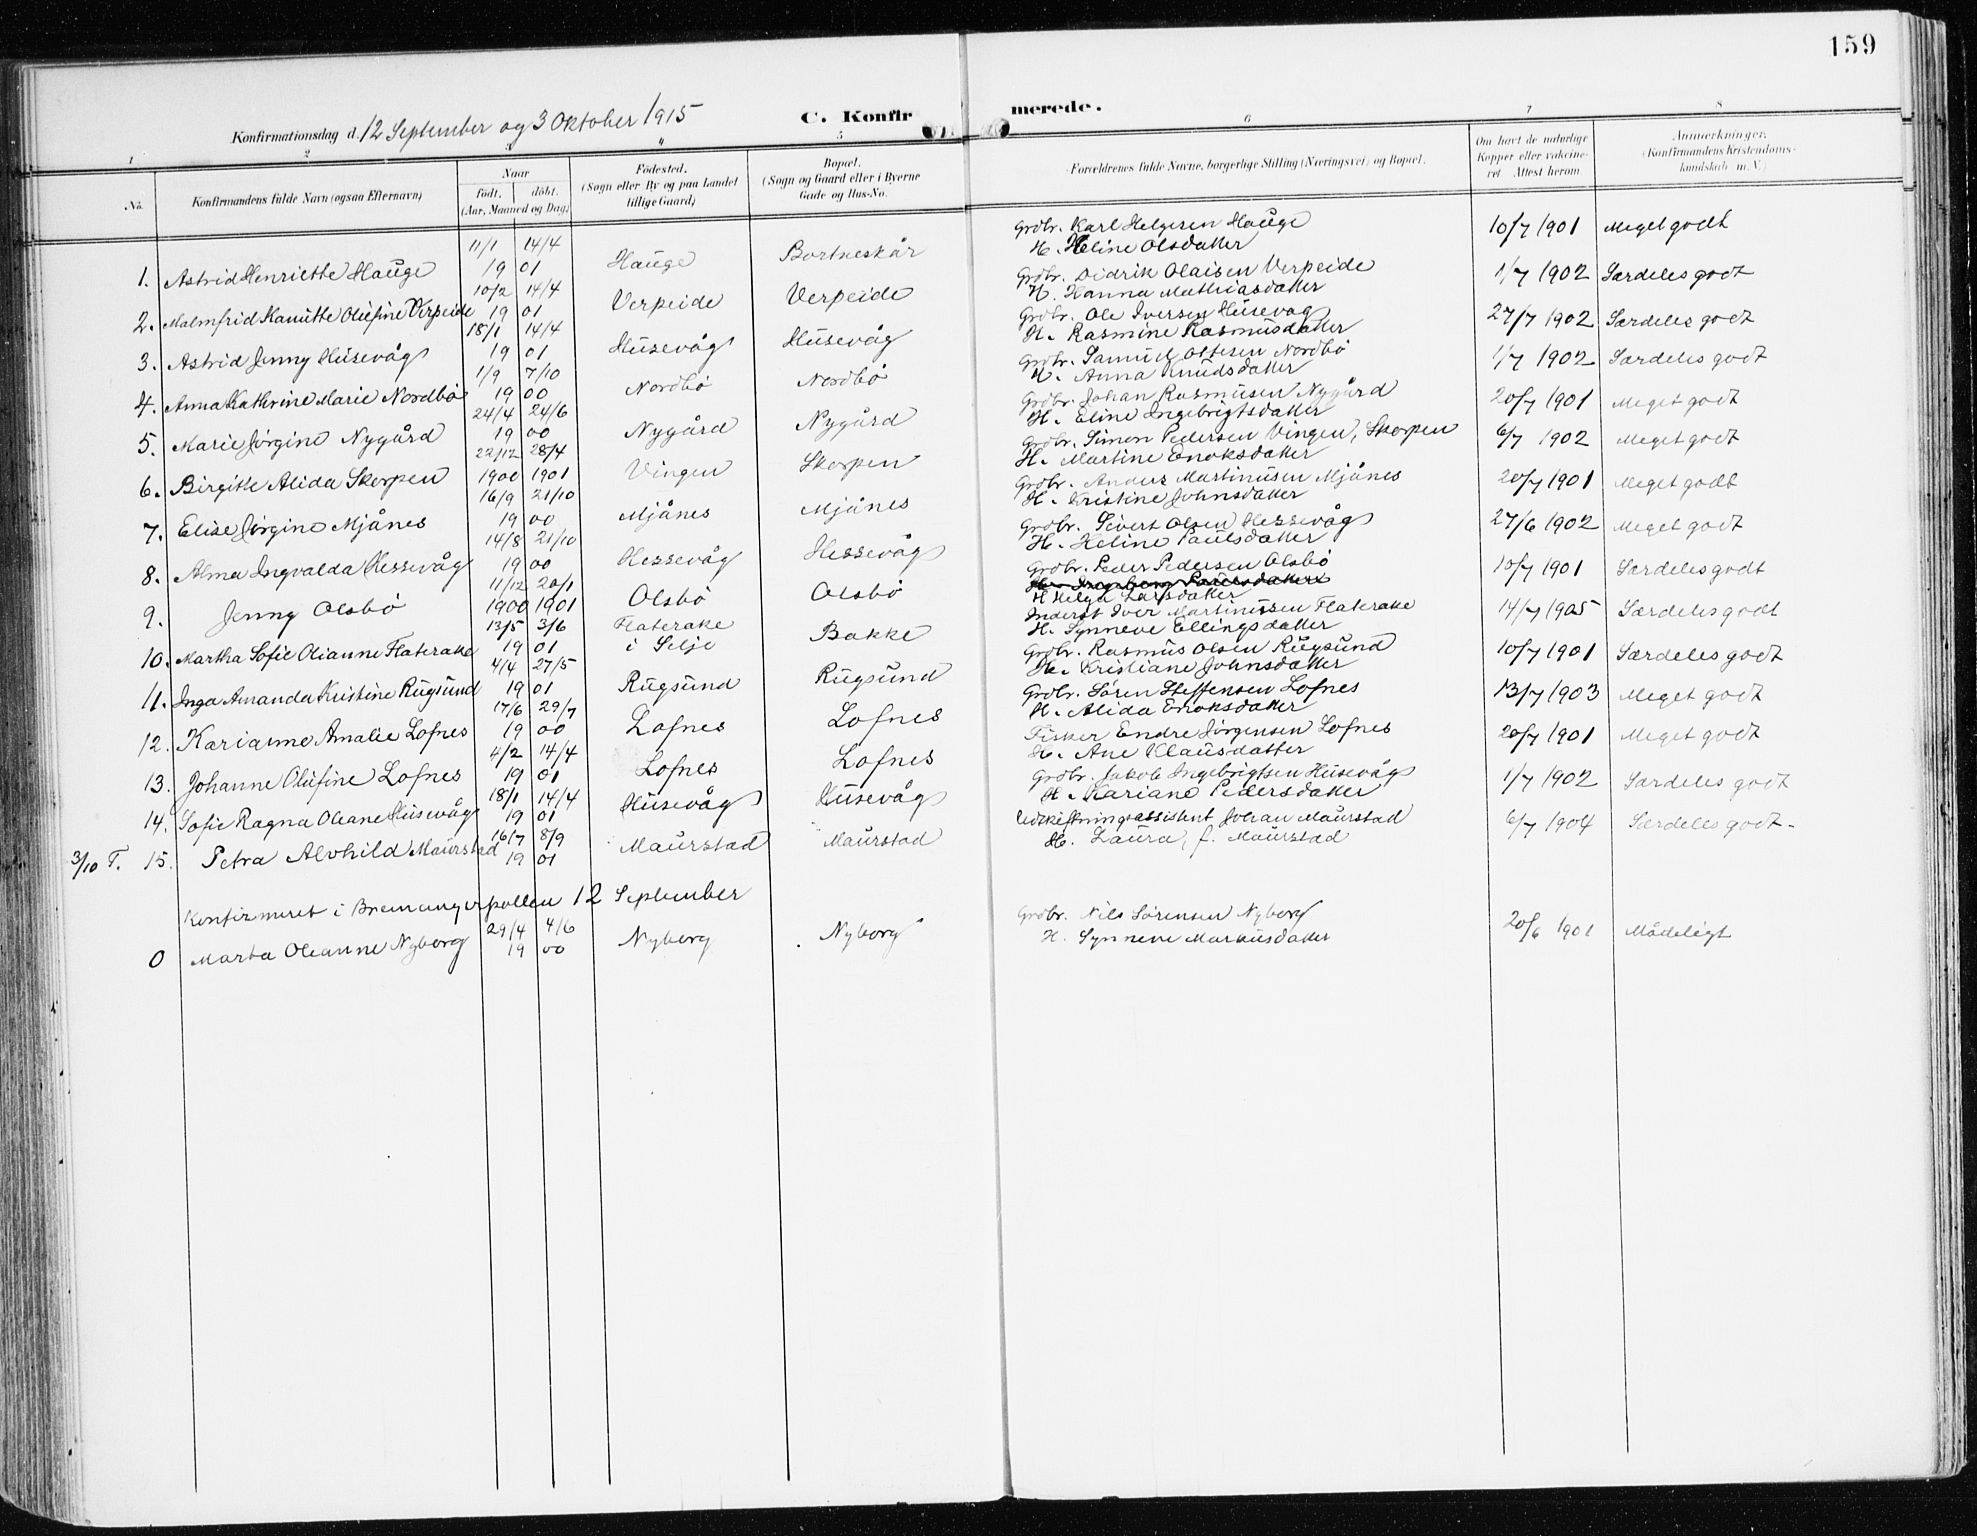 159
C. Konfirmerede.
Konfirmationsdag d. 12 September og 3 Oktober 1915
1 2 3 4 5 6 7 8
No.
Konfirmandens fulde Navn (ogsaa Efternavn)
Naar
födt. döbt.
(Aar, Maaned og Dag)
Födested.
(Sogn eller By og paa Landet
tillige Gaard)
Bopæl.
(Sogn og Gaard eller i Byerne
Gade og Hus-No.
Forældrenes fulde Navne, borgerlige Stilling (Næringsvei) og Bopæl.
Om havt de naturlige
Kopper eller vakcine-
ret Attest herom
Anmærkninger.
(Konfirmandens Kristendoms-
kundskab m. V.)
11/1 14/4 Grdbr. Karl Helgesen Hauge 10/7 1901 Meget godt
1. Astrid Henriette Hauge 19 01 Hauge Bortneskår H. Heline Olsdatter
10/2 14/4 Grdbr. Didrik Olaisen Verpeide 1/7 1902 Særdeles godt
2. Malmfrid Hanitte Olufine Verpeide 19 01 Verpeide Verpeide H. Hanna Mathiasdatter
18/1 14/4 Grdbr. Ole Iversen Husevåg 27/7 1902 Særdeles godt
3. Astrid Jenny Husevåg 19 01 Husevåg Husevåg H. Rasmine Rasmusdatter
1/9 7/10 Grdbr. Samuel Ottesen Nordbö 1/7 1902 Særdeles godt
4. Anna Kathrine Marie Nordbö 19 00 Nordbö Nordbö H. Anna Knudsdatter
24/4 24/6 Grdbr. Johan Rasmusen Nygård 20/7 1901 Meget godt
5. Marie Jörgine Nygård 19 00 Nygård Nygård H. Eline Ingebrigtsdatter
22/12 28/4 Grdbr. Simon Pedersen Vingen, Skorpen 6/7 1902 Meget godt
6. Birgitte Alida Skorpen 1900 1901 Vingen Skorpen H. Martine Enoksdatter
16/9 21/10 Grdbr. Anders Martinusen Mjånes 20/7 1901 Meget godt
7. Elise Jörgine Mjånes 19 00 Mjånes Mjånes H. Kristine Johnsdatter
14/8 21/10 Grdbr. Sivert Olsen Hessevåg 27/6 1902 Meget godt
8. Alma Ingvalda Hessevåg 19 00 Hessevåg Hessevåg H. Heline Paulsdatter
11/12 20/1 Grdbr. Peder Pedersen Olsbö 10/7 1901 Særdeles godt
9. Jenny Olsbö 1900 1901 Olsbö Olsbö H Helga Larsdatter
13/5 3/6 Flaterake Inderst Iver Martinussen Flaterake 14/7 1905 Særdeles godt
10. Martha Sofie Olianne Flaterake 19 01 i Selje Bakke H. Synneve Ellingsdatter
4/4 27/5 Grdbr. Rasmus Olsen Rugsund 10/7 1901 Særdeles godt
11. Inga Amanda Kristine Rugsund 19 01 Rugsund Rugsund H. Kristiane Johnsdatter
17/6 29/7 Grdbr. Sören Steffensen Lofnes 13/7 1903 Meget godt
12. Karianne Amalie Lofnes 19 00 Lofnes Lofnes H. Alida Enoksdatter
4/2 14/4 Fisker Endre Jörgensen Lofnes 20/7 1901 Meget godt
13. Johanne Olufine Lofnes 19 01 Lofnes Lofnes H. Ane Klausdatter
18/1 14/4 Grdbr. Jakob Ingebrigtsen Husevåg 1/7 1902 Særdeles godt
14. Sofie Ragna Oleane Husevåg 19 01 Husevåg Husevåg H. Kariane Pedersdatter
16/7 8/9 Udskiftningsassistent Johan Maurstad 6/7 1904 Særdeles godt
3/10 T. 15. Petra Alvhild Maurstad 19 01 Maurstad Maurstad H. Laura, f. Maurstad
Konfirmeret i Bremangerpollen 12 September
29/4 4/6 Grdbr. Nils Sörensen Nyborg 20/6 1901 Mådeligt
0 Marta Oleanne Nyborg 19 00 Nyborg Nyborg H. Synneve Markusdatter